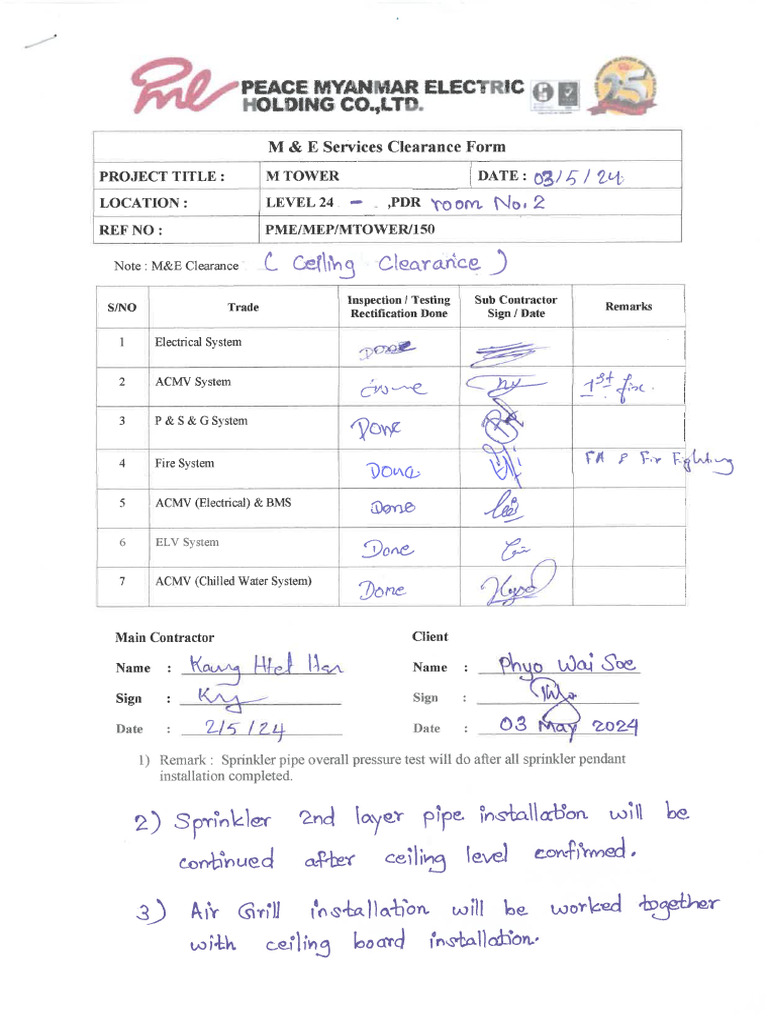 Pme PEACE MYANMAR ELECTRIC
HOLDING CO.,LTD.
25
M & E Services Clearance Form
PROJECT TITLE : M TOWER DATE : 03/5/24
LOCATION : LEVEL 24 - ,PDR room No.2
REF NO : PME/MEP/MTOWER/150
Note : M&E Clearance ( Ceiling Clearance )
S/NO Trade Inspection / Testing Rectification Done Sub Contractor Sign / Date Remarks
1 Electrical System Done
2 ACMV System 1st fix.
3 P & S & G System Done
4 Fire System Done FA & Fir Fighting
5 ACMV (Electrical) & BMS Done
6 ELV System Done
7 ACMV (Chilled Water System) Done
Main Contractor Client
Name : Kaung Htet Han Name : Phyo Wai Soe
Sign : Sign :
Date : 2/5/24 Date : 03 May 2024
1) Remark : Sprinkler pipe overall pressure test will do after all sprinkler pendant
installation completed.
2) Sprinkler 2nd layer pipe installation will be
continued after ceiling level confirmed.
3) Air Grill installation will be worked together
with ceiling board installation.